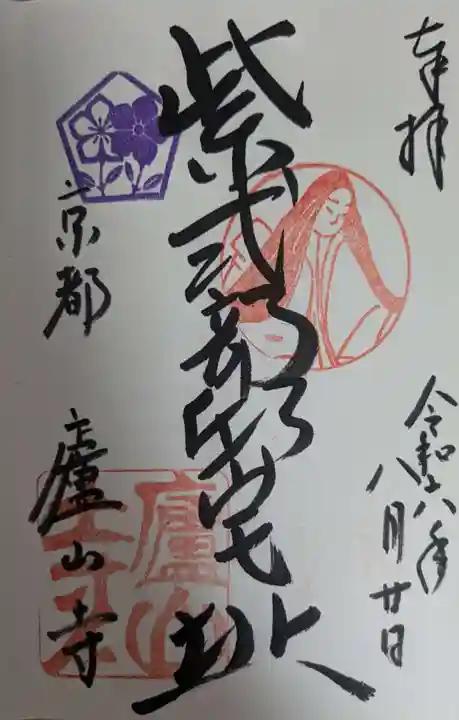 奉拝
令和六年
八月廿日
紫式部邸宅址
京都 廬山寺
廬山寺